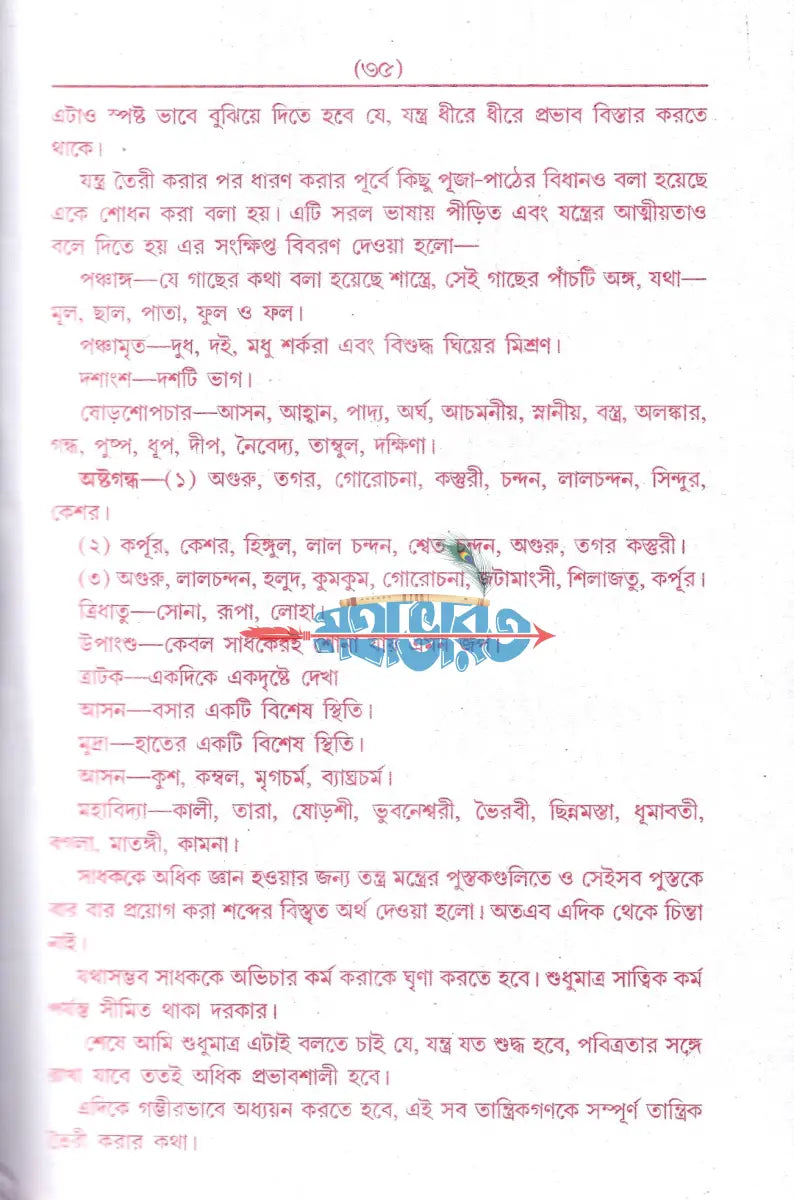 (৩৫)
এটাও স্পষ্ট ভাবে বুঝিয়ে দিতে হবে যে, যন্ত্র ধীরে ধীরে প্রভাব বিস্তার করতে
থাকে।
যন্ত্র তৈরী করার পর ধারণ করার পূর্বে কিছু পূজা-পাঠের বিধানও বলা হয়েছে
একে শোধন করা বলা হয়। এটি সরল ভাষায় পীড়িত এবং যন্ত্রের আত্মীয়তাও
বলে দিতে হয় এর সংক্ষিপ্ত বিবরণ দেওয়া হলো—
পঞ্চাঙ্গ—যে গাছের কথা বলা হয়েছে শাস্ত্রে, সেই গাছের পাঁচটি অঙ্গ, যথা—
মূল, ছাল, পাতা, ফুল ও ফল।
পঞ্চামৃত—দুধ, দই, মধু শর্করা এবং বিশুদ্ধ ঘিয়ের মিশ্রণ।
দশাংশ—দশটি ভাগ।
ষোড়শোপচার—আসন, আহ্বান, পাদ্য, অর্ঘ, আচমনীয়, স্নানীয়, বস্ত্র, অলঙ্কার,
গন্ধ, পুষ্প, ধূপ, দীপ, নৈবেদ্য, তাম্বুল, দক্ষিণা।
অষ্টগন্ধ—(১) অগুরু, তগর, গোরোচনা, কস্তুরী, চন্দন, লালচন্দন, সিন্দুর,
কেশর।
(২) কর্পূর, কেশর, হিঙ্গুল, লাল চন্দন, শ্বেত চন্দন, অগুরু, তগর কস্তুরী।
(৩) অগুরু, লালচন্দন, হলুদ, কুমকুম, গোরোচনা, জটামাংসী, শিলাজতু, কর্পূর।
ত্রিধাতু—সোনা, রূপা, লোহা।
মহাভারত
উপাংশু—কেবল সাধকেরই শোনা যায় এমন জপ।
ত্রাটক—একদিকে একদৃষ্টে দেখা
আসন—বসার একটি বিশেষ স্থিতি।
মুদ্রা—হাতের একটি বিশেষ স্থিতি।
আসন—কুশ, কম্বল, মৃগচর্ম, ব্যাঘ্রচর্ম।
মহাবিদ্যা—কালী, তারা, ষোড়শী, ভুবনেশ্বরী, ভৈরবী, ছিন্নমস্তা, ধূমাবতী,
বগলা, মাতঙ্গী, কামনা।
সাধককে অধিক জ্ঞান হওয়ার জন্য তন্ত্র মন্ত্রের পুস্তকগুলিতে ও সেইসব পুস্তকে
বার বার প্রয়োগ করা শব্দের বিস্তৃত অর্থ দেওয়া হলো। অতএব এদিক থেকে চিন্তা
নাই।
যথাসম্ভব সাধককে অভিচার কর্ম করাকে ঘৃণা করতে হবে। শুধুমাত্র সাত্বিক কর্ম
পর্যন্ত সীমিত থাকা দরকার।
শেষে আমি শুধুমাত্র এটাই বলতে চাই যে, যন্ত্র যত শুদ্ধ হবে, পবিত্রতার সঙ্গে
রাখা যাবে ততই অধিক প্রভাবশালী হবে।
এদিকে গম্ভীরভাবে অধ্যয়ন করতে হবে, এই সব তান্ত্রিকগণকে সম্পূর্ণ তান্ত্রিক
তৈরী করার কথা।